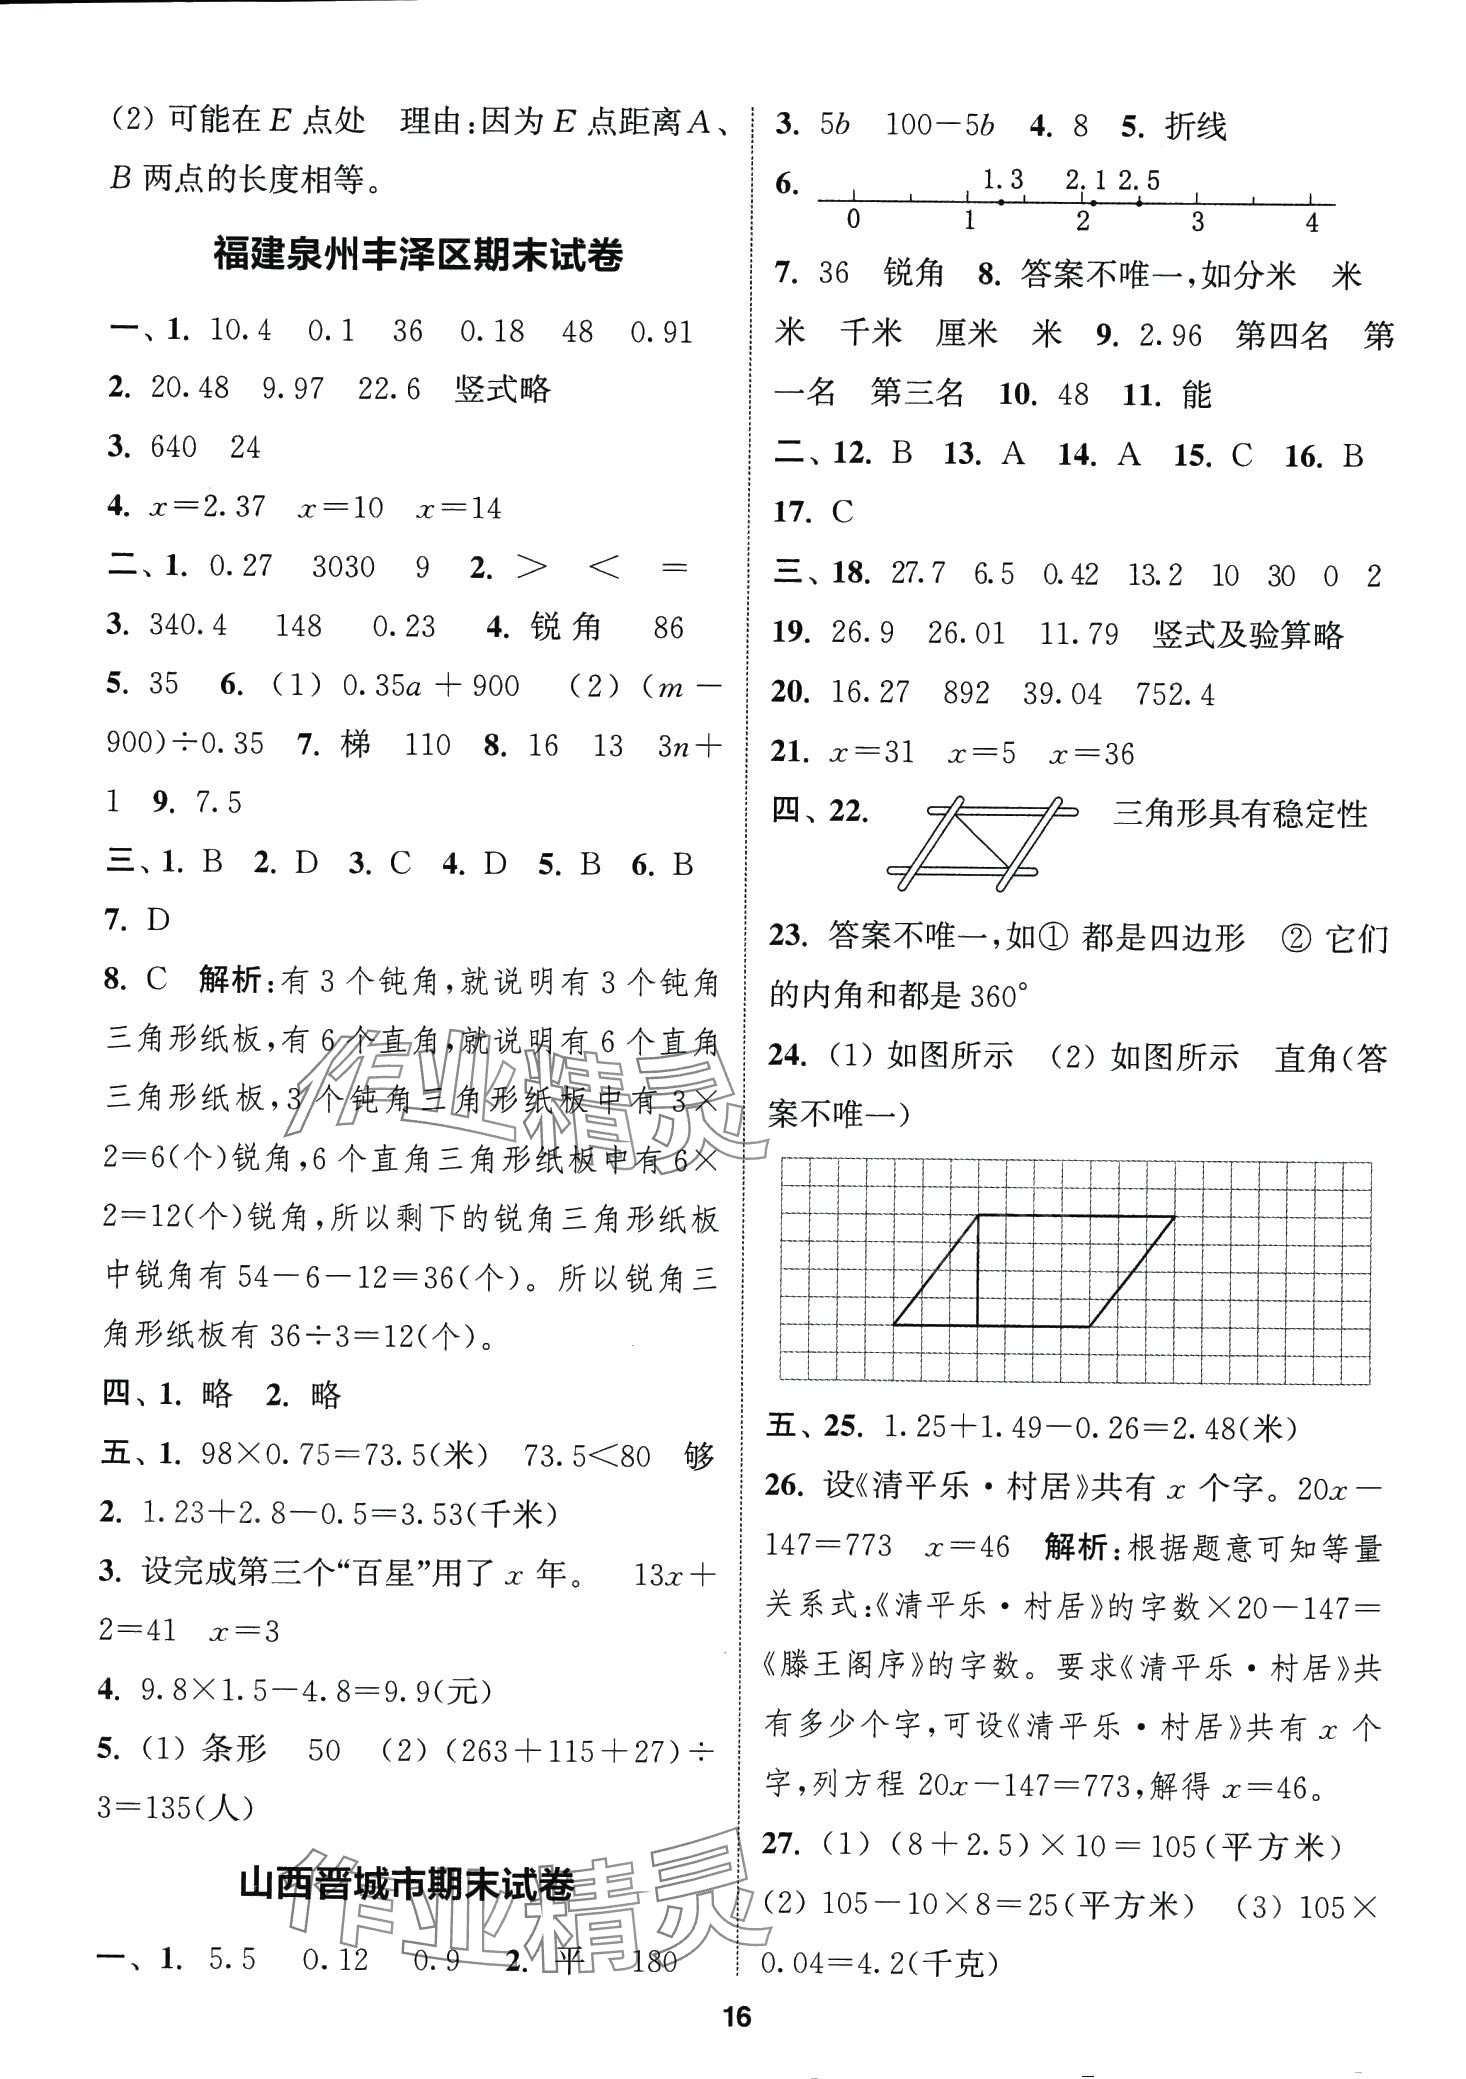 (2) 可能在 E 点处　理由:因为 E 点距离 A、
B 两点的长度相等。
福建泉州丰泽区期末试卷
一、1. 10.4　0.1　36　0.18　48　0.91
2. 20.48　9.97　22.6　竖式略
3. 640　24
4. x=2.37　x=10　x=14
二、1. 0.27　3030　9　2. >　<　=
3. 340.4　148　0.23　4. 锐角　86
5. 35　6. (1) 0.35a+900　(2) (m-
900)÷0.35　7. 梯　110　8. 16　13　3n+
1　9. 7.5
三、1. B　2. D　3. C　4. D　5. B　6. B
7. D
8. C　解析:有 3 个钝角,就说明有 3 个钝角
三角形纸板,有 6 个直角,就说明有 6 个直角
三角形纸板,3 个钝角三角形纸板中有 3×
2=6(个)锐角,6 个直角三角形纸板中有 6×
2=12(个)锐角,所以剩下的锐角三角形纸板
中锐角有 54-6-12=36(个)。所以锐角三
角形纸板有 36÷3=12(个)。
四、1. 略　2. 略
五、1. 98×0.75=73.5(米)　73.5<80　够
2. 1.23+2.8-0.5=3.53(千米)
3. 设完成第三个“百星”用了 x 年。　13x+
2=41　x=3
4. 9.8×1.5-4.8=9.9(元)
5. (1) 条形　50　(2) (263+115+27)÷
3=135(人)
山西晋城市期末试卷
一、1. 5.5　0.12　0.9　2. 平　180
3. 5b　100-5b　4. 8　5. 折线
6. 1.3　2.1　2.5
0　1　2　3　4
7. 36　锐角　8. 答案不唯一,如分米　米
米　千米　厘米　米　9. 2.96　第四名　第
一名　第三名　10. 48　11. 能
二、12. B　13. A　14. A　15. C　16. B
17. C
三、18. 27.7　6.5　0.42　13.2　10　30　0　2
19. 26.9　26.01　11.79　竖式及验算略
20. 16.27　892　39.04　752.4
21. x=31　x=5　x=36
四、22. 三角形具有稳定性
23. 答案不唯一,如① 都是四边形　② 它们
的内角和都是 360°
24. (1) 如图所示　(2) 如图所示　直角(答
案不唯一)
五、25. 1.25+1.49-0.26=2.48(米)
26. 设《清平乐·村居》共有 x 个字。20x-
147=773　x=46　解析:根据题意可知等量
关系式:《清平乐·村居》的字数×20-147=
《滕王阁序》的字数。要求《清平乐·村居》共
有多少个字,可设《清平乐·村居》共有 x 个
字,列方程 20x-147=773,解得 x=46。
27. (1) (8+2.5)×10=105(平方米)
(2) 105-10×8=25(平方米)　(3) 105×
0.04=4.2(千克)
作业精灵
作业精灵
16